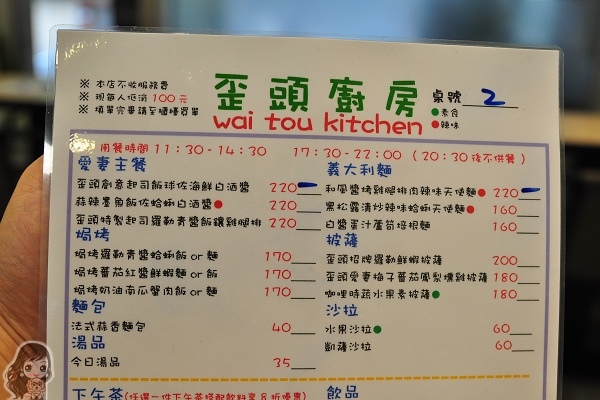 ※ 本店不收服務費
※ 現每人低消 100 元
※ 填單完畢請至櫃檯買單
歪頭廚房
wai tou kitchen
桌號 2
●素食
●辣味
用餐時間 11:30-14:30 17:30-22:00 (20:30後不供餐)
愛妻主餐
歪頭創意起司飯球佐海鮮白酒醬 220
蒜辣墨魚飯佐蛤蜊白酒醬● 220
歪頭特製起司羅勒青醬飯鑲雞腿排 220
焗烤
焗烤羅勒青醬蛤蜊飯 or 麵 170
焗烤蕃茄紅醬鮮蝦麵 or 飯 170
焗烤奶油南瓜蟹肉飯 or 麵 170
麵包
法式蒜香麵包 40
湯品
今日湯品 35
下午茶(任選一件下午茶搭配飲料享 8 折優惠)
義大利麵
和風醬烤雞腿排肉辣味天使麵● 220
黑松露清炒辣味蛤蜊天使麵● 160
白醬蛋汁蘆筍培根麵 160
披薩
歪頭招牌羅勒鮮蝦披薩 200
歪頭愛妻梅子蕃茄鳳梨燻雞披薩 180
咖哩時蔬水果素披薩● 180
沙拉
水果沙拉● 60
凱薩沙拉 60
飲品